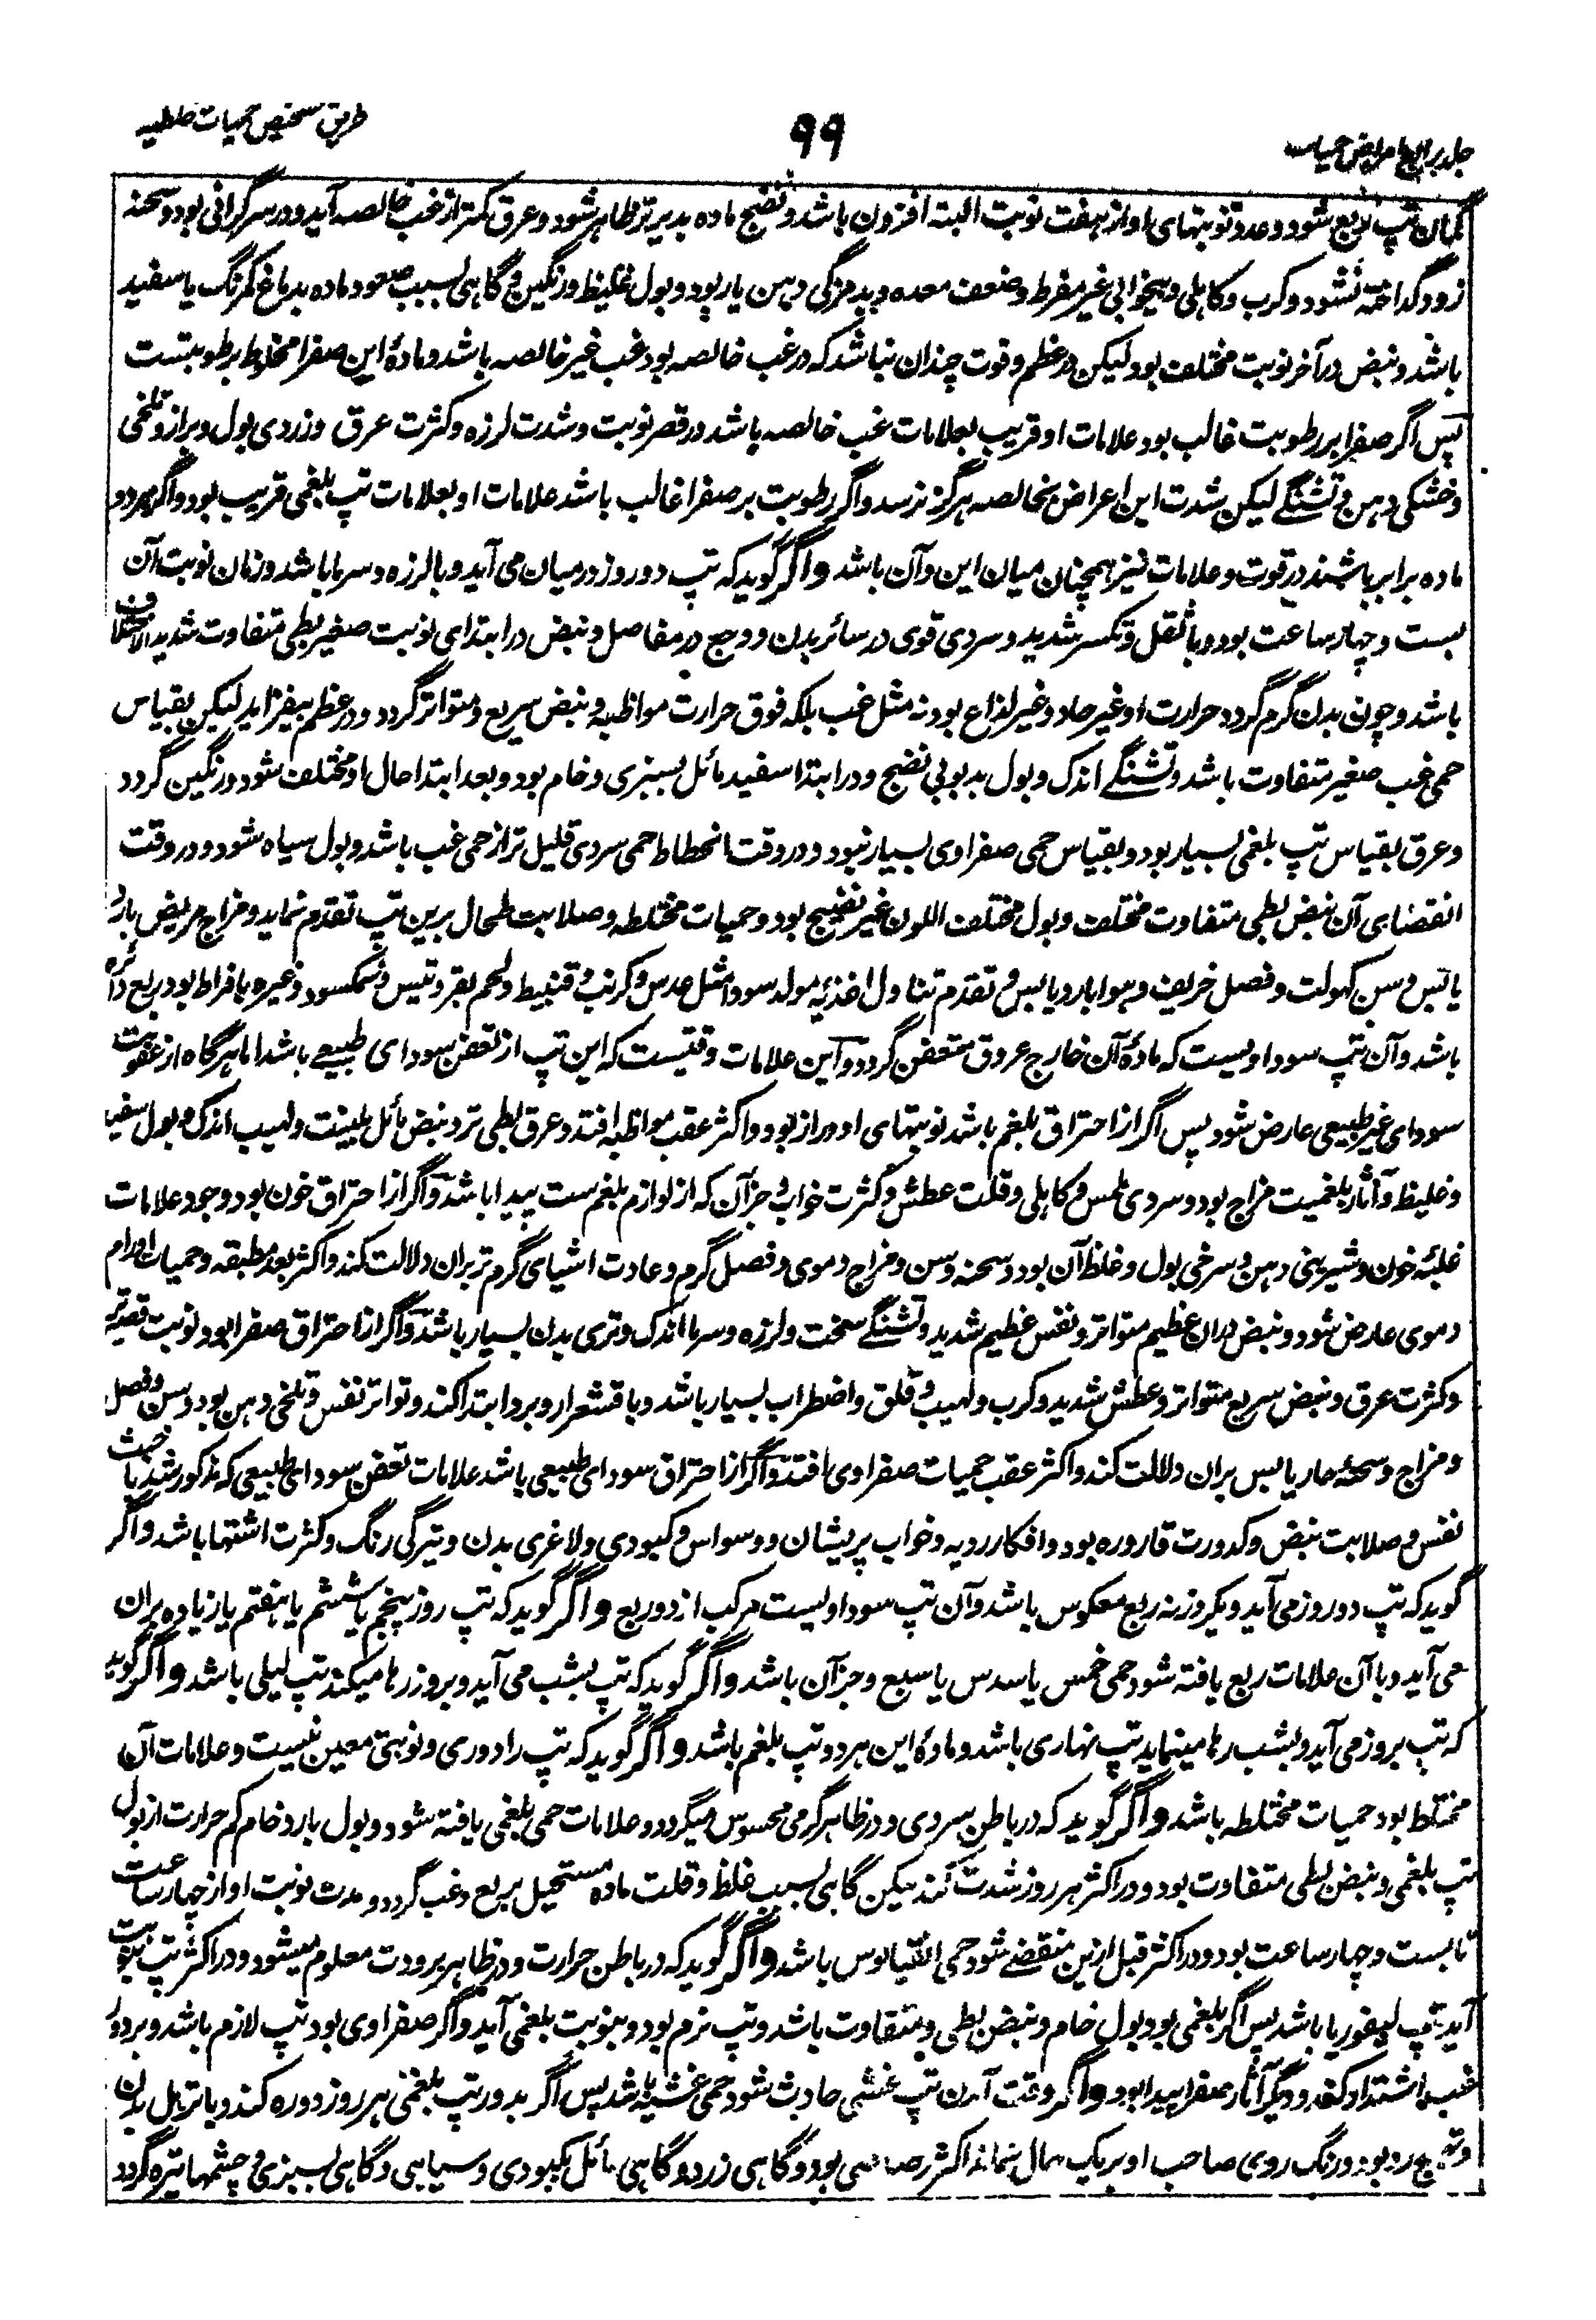 جلد چهارم امراض حمیات
۹۹
طریق تشخیص حمیات خلطیه
گمان تپ ربع شود و عدد نوبتهای او از هفت نوبت البته افزون باشد و نضج ماده بدیر تر ظاهر شود و عرق کمتر از غب خالصه آید و در سر گرانی بود و سحنه
زود گداخته نشود و کرب و کاهلی و بیخوابی غیر مفرط و ضعف معده و بدمزگی دهن یار بود و بول غلیظ و رنگین و گاهی بسبب صعود ماده بدماغ کمرنگ یا سفید
باشد و نبض در آخر نوبت مختلف بود لیکن در عظم و قوت چندان نباشد که در غب خالصه بود غب غیر خالصه باشد و مادۀ این صفرا مخلوط برطوبتست
پس اگر صفرا بر رطوبت غالب بود علامات او قریب بعلامات غب خالصه باشد در قصر نوبت و شدت لرزه و کثرت عرق و زردی بول و براز و تلخی
و خشکی دهن و تشنگی لیکن شدت این اعراض بخالصه هرگز نرسد و اگر رطوبت بر صفرا غالب باشد علامات او بعلامات تپ بلغمی قریب بود و اگر هر دو
ماده برابر باشند در قوت و علامات نیز همچنان میان این و آن باشد و اگر گوید که تپ دو روز درمیان می آید و با لرزه و سرما باشد و زمان نوبت آن
بست و چهار ساعت بود و با ثقل و تکسر شدید و سردی قوی در سائر بدن و وجع در مفاصل و نبض در ابتدای نوبت صغیر بطی متفاوت شدید الاختلاف
باشد و چون بدن گرم گردد حرارت او غیر حاد و غیر لذاع بود نه مثل غب بلکه فوق حرارت مواظبه و نبض سریع و متواتر گردد و در عظم بیفزاید لیکن بقیاس
حمی غب صغیر متفاوت باشد و تشنگی اندک و بول بد بو بی نضج و در ابتدا سفید مائل بسبزی و خام بود و بعد ابتدا حال او مختلف شود و رنگین گردد
و عرق بقیاس تپ بلغمی بسیار بود و بقیاس حمی صفراوی بسیار نبود و در وقت انحطاط حمی سردی قلیل تر از حمی غب باشد و بول سیاه شود و در وقت
انقضای آن نبض بطی متفاوت مختلف و بول مختلف اللون غیر نضیج بود و حمیات مختلطه و صلابت طحال برین تپ تقدم نماید و مزاج مریض بارد
یابس و سن کهولت و فصل خریف و هوا بارد یابس و تقدم تناول اغذیۀ مولد سودا مثل عدس و کرنب و قنبیط و لحم بقر و تیس و نمکسود و غیره بافراط بود ربع دائره
باشد و آن تپ سوداویست که مادۀ آن خارج عروق متعفن گردد و این علامات وقتیست که این تپ از تعفن سودای طبیعی باشد اما هرگاه از عفونت
سودای غیر طبیعی عارض شود پس اگر از احتراق بلغم باشد نوبتهای او دراز بود و اکثر عقب مواظبه افتد و عرق بطی تر و نبض مائل بلینت و لهیب اندک و بول سفید
و غلیظ و آثار بلغمیت مزاج بود و سردی ملمس و کاهلی و قلت عطش و کثرت خواب و جز آن که از لوازم بلغم ست پیدا باشد و اگر از احتراق خون بود وجود علامات
غلبۀ خون و شیرینی دهن و سرخی بول و غلظ آن بود و سحنه و سن و مزاج دموی و فصل گرم و عادت اشیای گرم تر بران دلالت کند و اکثر بعد مطبقه و حمیات اورام
دموی عارض شود و نبض دران عظیم متواتر و نفس عظیم شدید و تشنگی سخت و لرزه و سرما اندک و تری بدن بسیار باشد و اگر از احتراق صفرا بود نوبت قصیر
و کثرت عرق و نبض سریع متواتر و عطش شدید و کرب و لهیب و قلق و اضطراب بسیار باشد و با قشعرار و برد ابتدا کند و تواتر نفس و تلخی دهن بود و سن و فصل
و مزاج و سحنۀ حار یابس بران دلالت کند و اکثر عقب حمیات صفراوی افتد و اگر از احتراق سودای طبیعی باشد علامات تعفن سودای طبیعی که مذکور شد با خبث
نفس و صلابت نبض و کدورت قاروره بود و افکار ردیه و خواب پریشان و وسواس و کبودی و لاغری بدن و تیرگی رنگ و کثرت اشتها باشد و اگر
گوید که تپ دو روز می آید و یکروز نه ربع معکوس باشد و آن تپ سوداویست مرکب از دو ربع و اگر گوید که تپ روز پنجم یا ششم یا هفتم یا زیاده بران
می آید و با آن علامات ربع یافته شود حمی خمس یا سدس یا سبع و جز آن باشد و اگر گوید که تپ بشب می آید و بروز رها میکند تپ لیلی باشد و اگر گوید
که تپ بروز می آید و بشب رها مینماید تپ نهاری باشد و مادۀ این هر دو تپ بلغم باشد و اگر گوید که تپ را دوری و نوبتی معین نیست و علامات آن
مختلط بود حمیات مختلطه باشد و اگر گوید که در باطن سردی و در ظاهر گرمی محسوس میگردد و علامات حمی بلغمی یافته شود و بول بارد خام کم حرارت از بول
تپ بلغمی و نبض بطی متفاوت بود و در اکثر هر روز شدت کند لیکن گاهی بسبب غلظ و قلت ماده مستحیل بربع و غب گردد و مدت نوبت او از چهار ساعت
تا بست و چهار ساعت بود و در اکثر قبل ازین منقضی شود حمی انقیالوس باشد و اگر گوید که در باطن حرارت و در ظاهر برودت معلوم میشود و در اکثر تپ بنوبت
آید تپ لیفوریا باشد پس اگر بلغمی بود بول خام و نبض بطی و متفاوت باشد و تپ نرم بود و بنوبت بلغمی آید و اگر صفراوی بود تپ لازم باشد و بر دور
غب اشتداد کند و دیگر آثار صفرا پیدا بود و اگر وقت آمدن تپ غشی حادث شود حمی غشیه باشد پس اگر بدور تپ بلغمی هر روز دوره کند و با تربل بدن
و تهبج رو بود و رنگ روی صاحب او بر یک حال نماند اکثر رصاصی بود و گاهی زرد و گاهی مائل بکبودی و سیاهی و گاهی بسبزی و چشمها تیره گردد